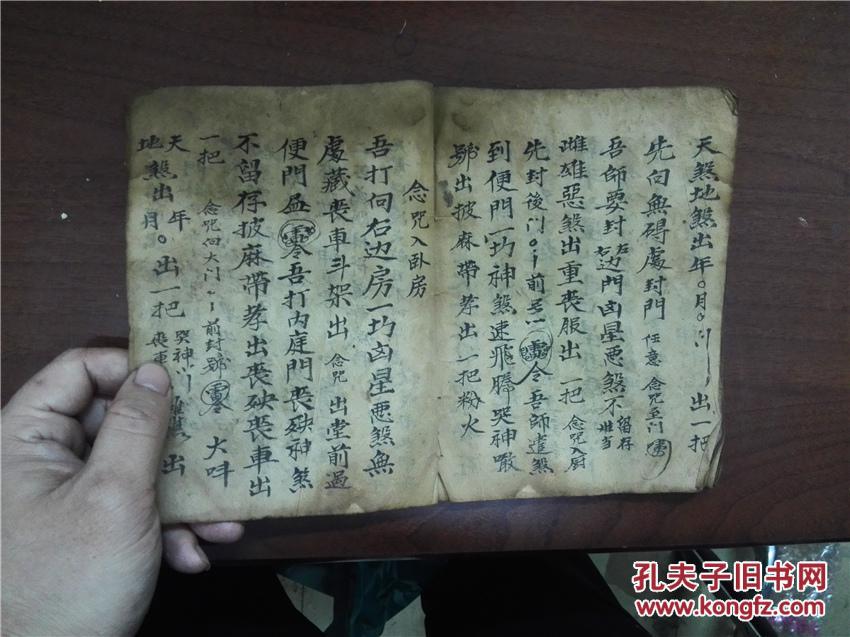 天煞地煞出年〇月〇 出一把
先向無碍處封門 任意 念咒至门
吾師要封左右边門凶星恶煞不留存
雌雄惡煞出重喪服出一把 念咒入厨
先封後门 前
令吾師遣煞
到便門一切神煞速飛騰哭神
號出披麻帶孝出一把粉火
念咒入卧房
吾打向右边房一切凶星恶煞無
處藏喪車斗架出 念咒 出堂前過
便門 吾打内庭門喪殃神煞
不留存披麻帶孝出喪殃喪車出
一把 念咒向大门 前封號 大吽
天地煞出年月〇出一把 哭神 出
孔夫子旧书网
www.kongfz.com